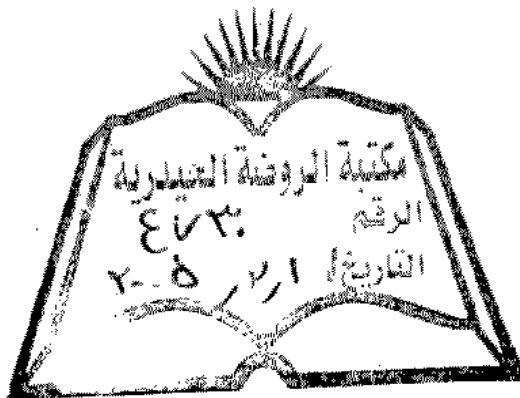 مكتبة الروضة الحيدرية
الرقم ٤٧٣٠
التاريخ / ١ / ٢ / ٢٠٠٥